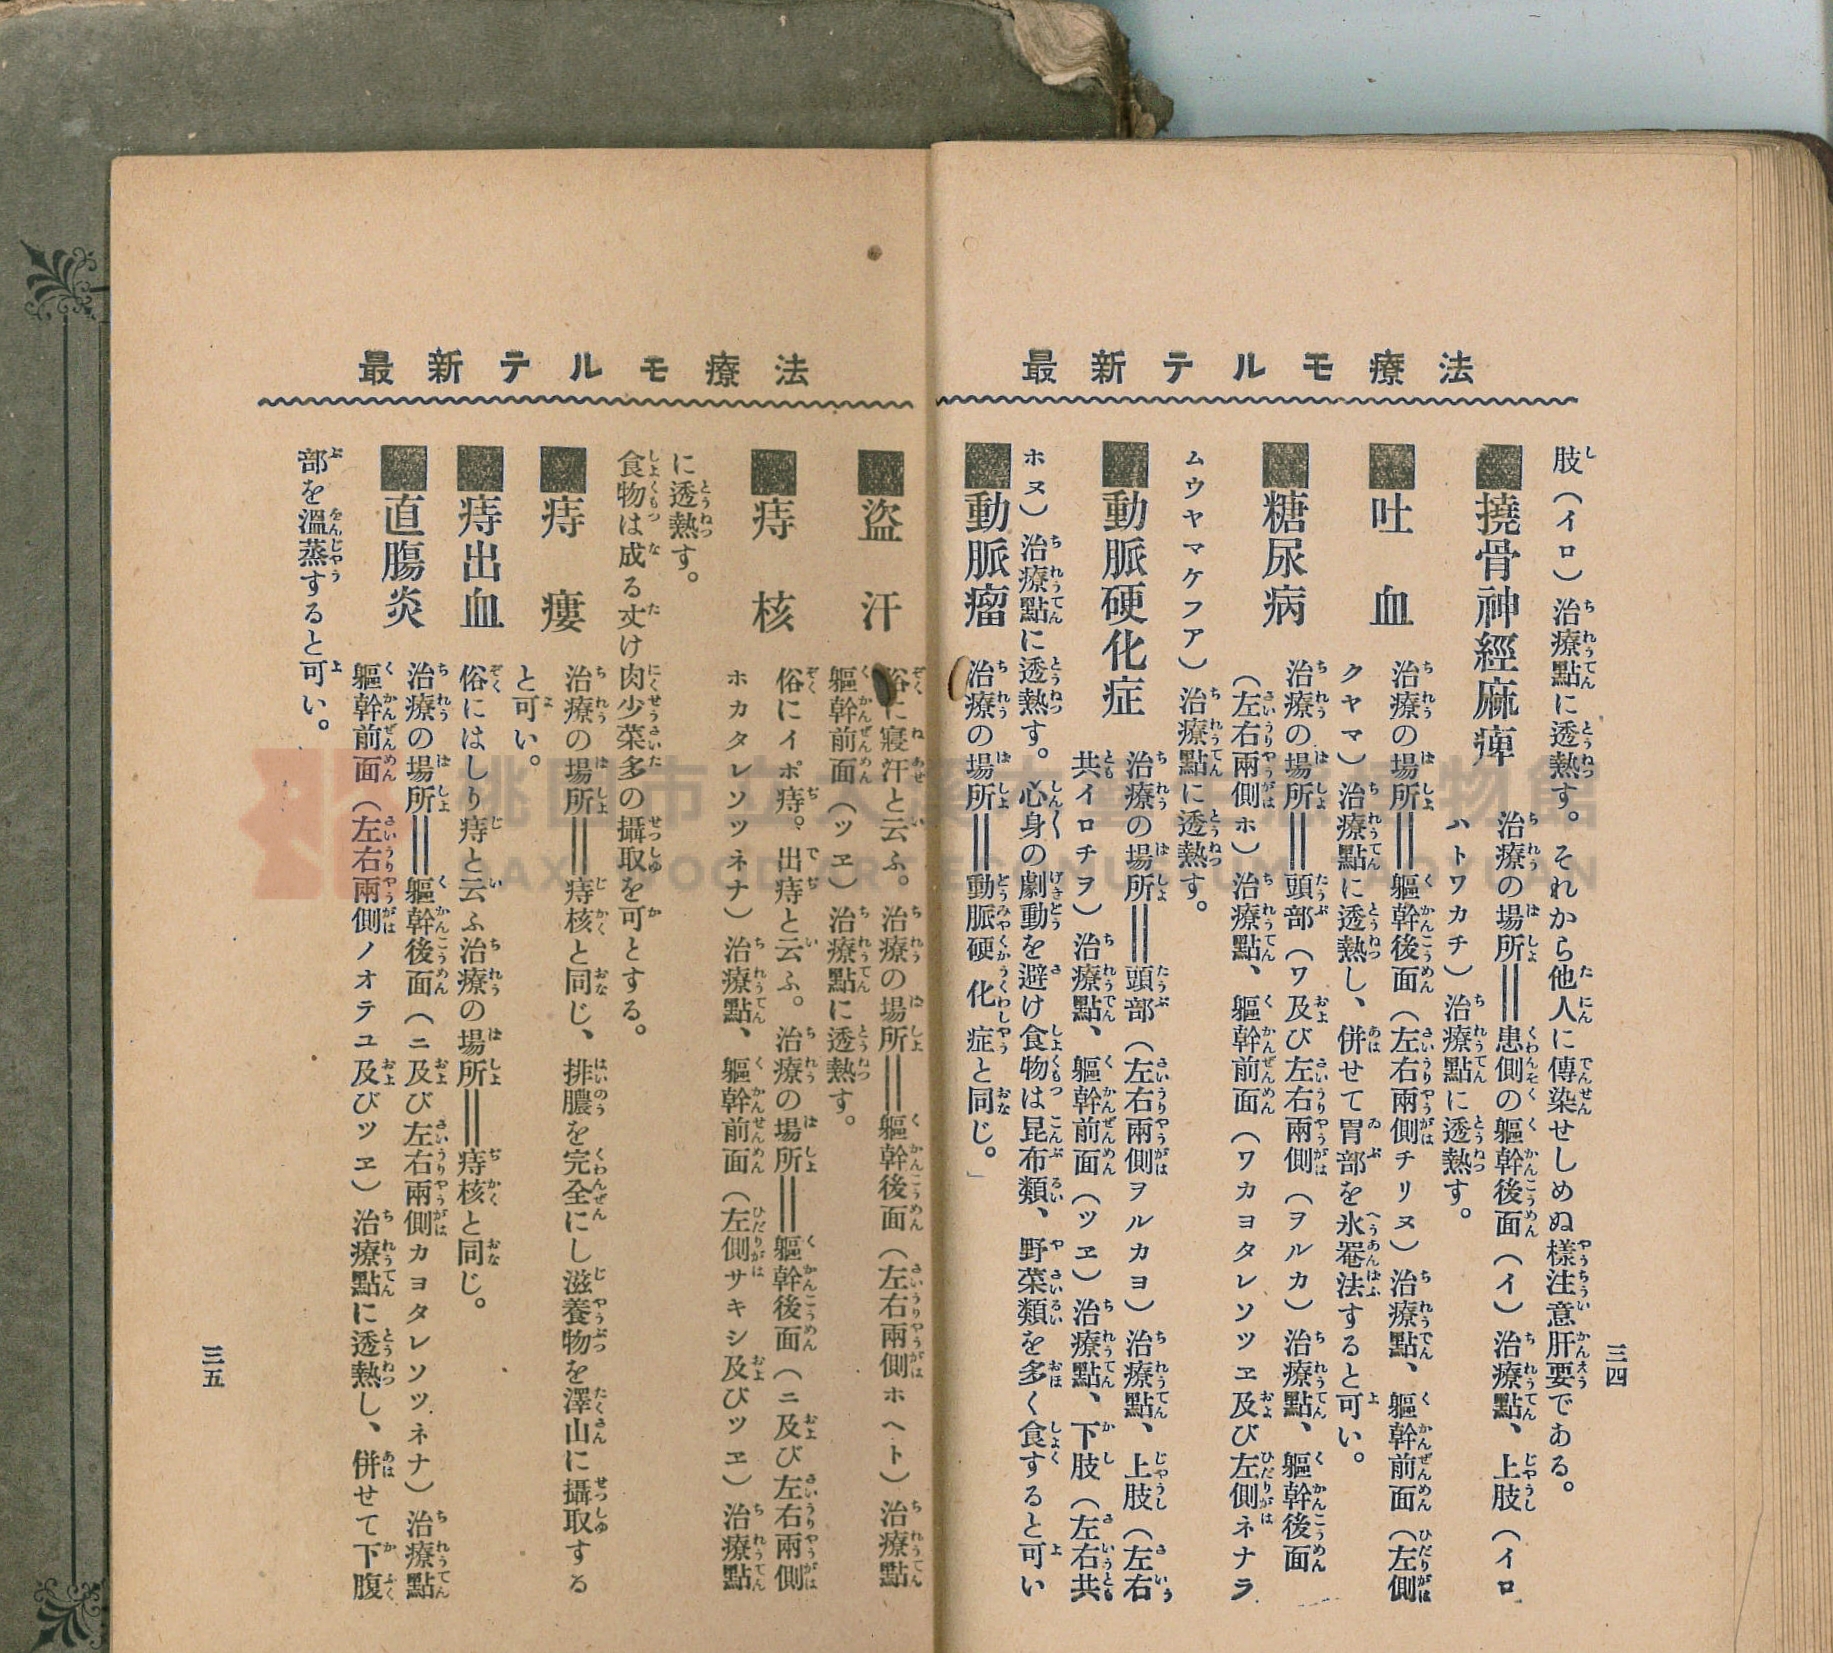 最新テルモ療法
肢（イロ）治療點に透熱す。それから他人に傳染せしめぬ樣注意肝要である。
■撓骨神經麻痺　治療の場所＝患側の軀幹後面（イ）治療點、上肢（イロ
ハトワカチ）治療點に透熱す。
■吐血　治療の場所＝軀幹後面（左右兩側チリヌ）治療點、軀幹前面（左側
クヤマ）治療點に透熱し、併せて胃部を氷罨法すると可い。
■糖尿病　治療の場所＝頭部（ワ及び左右兩側（ヲルカ）治療點、軀幹後面
（左右兩側ホ）治療點、軀幹前面（ワカヨタレソツヱ及び左側ネナラ
ムウヤマケフア）治療點に透熱す。
■動脈硬化症　治療の場所＝頭部（左右兩側ヲルカヨ）治療點、上肢（左右
共イロチヲ）治療點、軀幹前面（ツヱ）治療點、下肢（左右共
ホヌ）治療點に透熱す。心身の劇動を避け食物は昆布類、野菜類を多く食すると可い
■動脈瘤　治療の場所＝動脈硬化症と同じ。」
三四
最新テルモ療法
■盜汗　俗に寢汗と云ふ。治療の場所＝軀幹後面（左右兩側ホヘト）治療點
軀幹前面（ツヱ）治療點に透熱す。
■痔核　俗にイボ痔。出痔と云ふ。治療の場所＝軀幹後面（ニ及び左右兩側
ホカタレソツネナ）治療點、軀幹前面（左側サキシ及びツヱ）治療點
に透熱す。
食物は成る丈け肉少菜多の攝取を可とする。
■痔瘻　治療の場所＝痔核と同じ、排膿を完全にし滋養物を澤山に攝取する
と可い。
■痔出血　俗にはしり痔と云ふ治療の場所＝痔核と同じ。
■直腸炎　治療の場所＝軀幹後面（ニ及び左右兩側カヨタレソツネナ）治療點
軀幹前面（左右兩側ノオテユ及びツヱ）治療點に透熱し、併せて下腹
部を溫蒸すると可い。
三五
桃園市立大溪木藝生態博物館
DAXI WOOD ART ECOMUSEUM, TAOYUAN